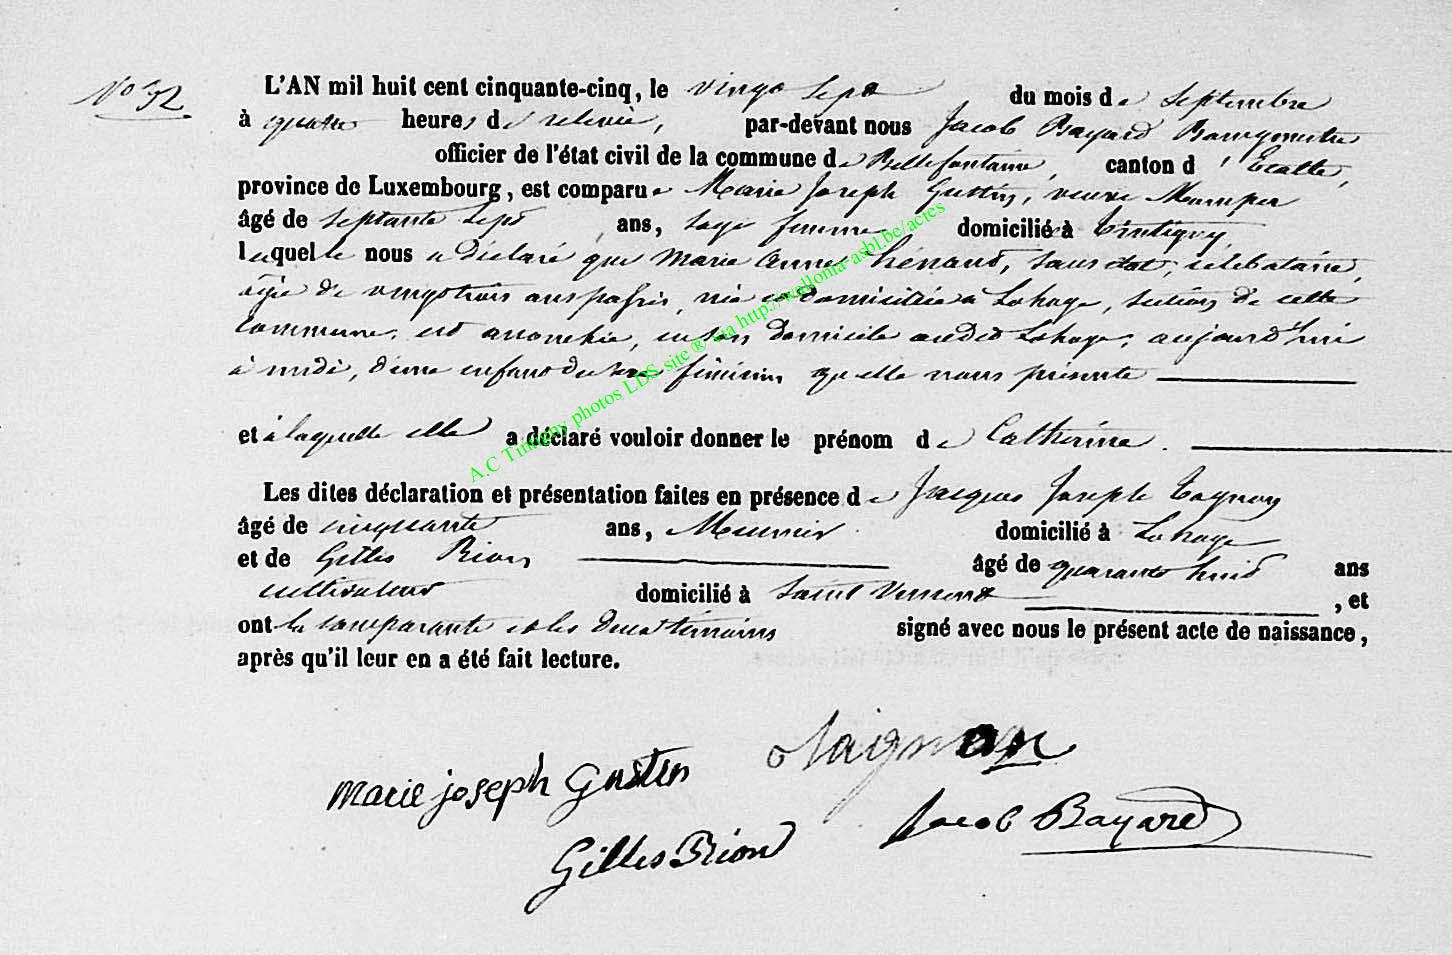 No 32
L'AN mil huit cent cinquante-cinq, le vingt sept du mois de Septembre
à quatre heures de relevée, par-devant nous Jacob Bayard Bourgmestre
officier de l'état civil de la commune de Bellefontaine, canton d'Etalle,
province de Luxembourg, est comparue Marie Joseph Gustin, veuve
âgé de septante sept ans, sage femme domiciliée à Tintigny
laquelle nous a déclaré que Marie Anne hénaud, sans état, célebataire,
agée de vingt trois ans passés, née et domiciliée à Lahage, section de cette
commune, est accouchée, en son domicile audit Lahage, aujourd'hui
à midi, d'une enfant du sexe féminin qu'elle nous présente
et à laquelle elle a déclaré vouloir donner le prénom de Catherine.
Les dites déclaration et présentation faites en présence de Jacques Joseph Tagnon
âgé de cinquante ans, Meunier domicilié à Lahage
et de Gilles Rion âgé de quarante huit ans
cultivateur domicilié à Saint Vincent, et
ont la comparante et les deux témoins signé avec nous le présent acte de naissance,
après qu'il leur en a été fait lecture.
marie joseph Gustin
Gilles Rion
Jacob Bayard
A.C Tintigny photos LDS site ® via http://wallonia-asbl.be/actes